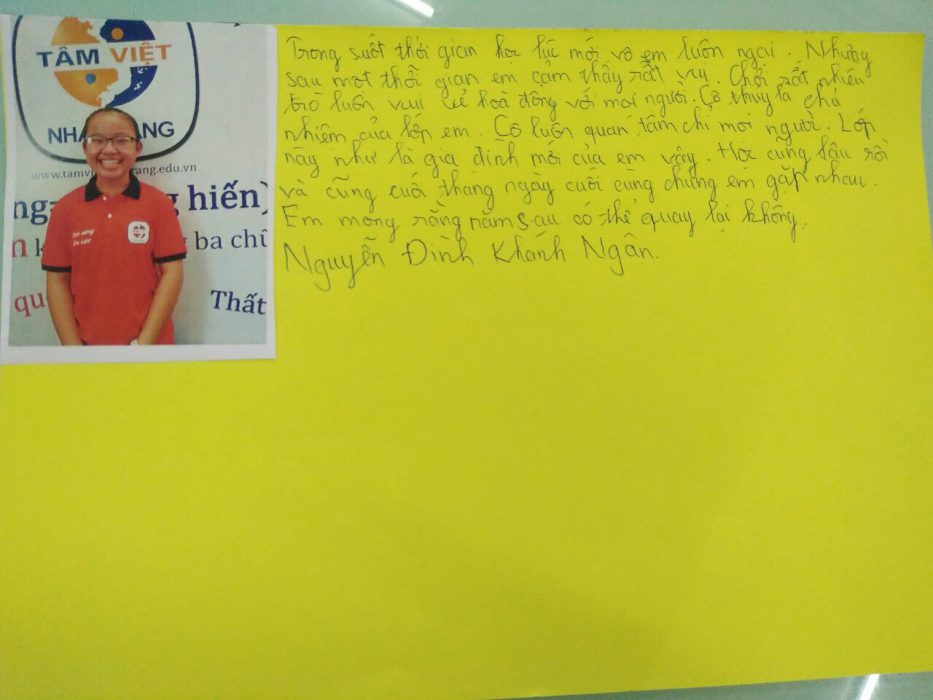 TÂM VIỆT
NHA TRANG
www.tamvi rang.edu.vn
ng- g hiến)
n k g ba chữ
qu Thất
Trong suốt thời gian học lúc mới vô em luôn ngại. Nhưng
sau một thời gian em cảm thấy rất vui. Chơi rất nhiều
trò luôn vui vẻ hoà đồng với mọi người. Cô thuỷ là chủ
nhiệm của lớp em. Cô luôn quan tâm chỉ mọi người. Lớp
này như là gia đình mới của em vậy. Học cũng lâu rồi
và cũng cuối tháng ngày cuối cùng chúng em gặp nhau.
Em mong rằng năm sau có thể quay lại không.
Nguyễn Đình Khánh Ngân.